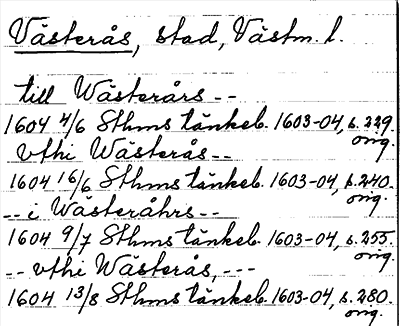 Västerås, stad, Västm. l.
till Wästerårs --
1604 4/6 Sthms tänkeb. 1603-04, s. 229.
orig.
vthi Wästerås --
1604 16/6 Sthms tänkeb. 1603-04, s. 240.
orig.
-- i Wästeråhrs --
1604 9/7 Sthms tänkeb. 1603-04, s. 255.
orig.
-- vthi Wästerås, ---
1604 13/8 Sthms tänkeb. 1603-04, s. 280.
orig.